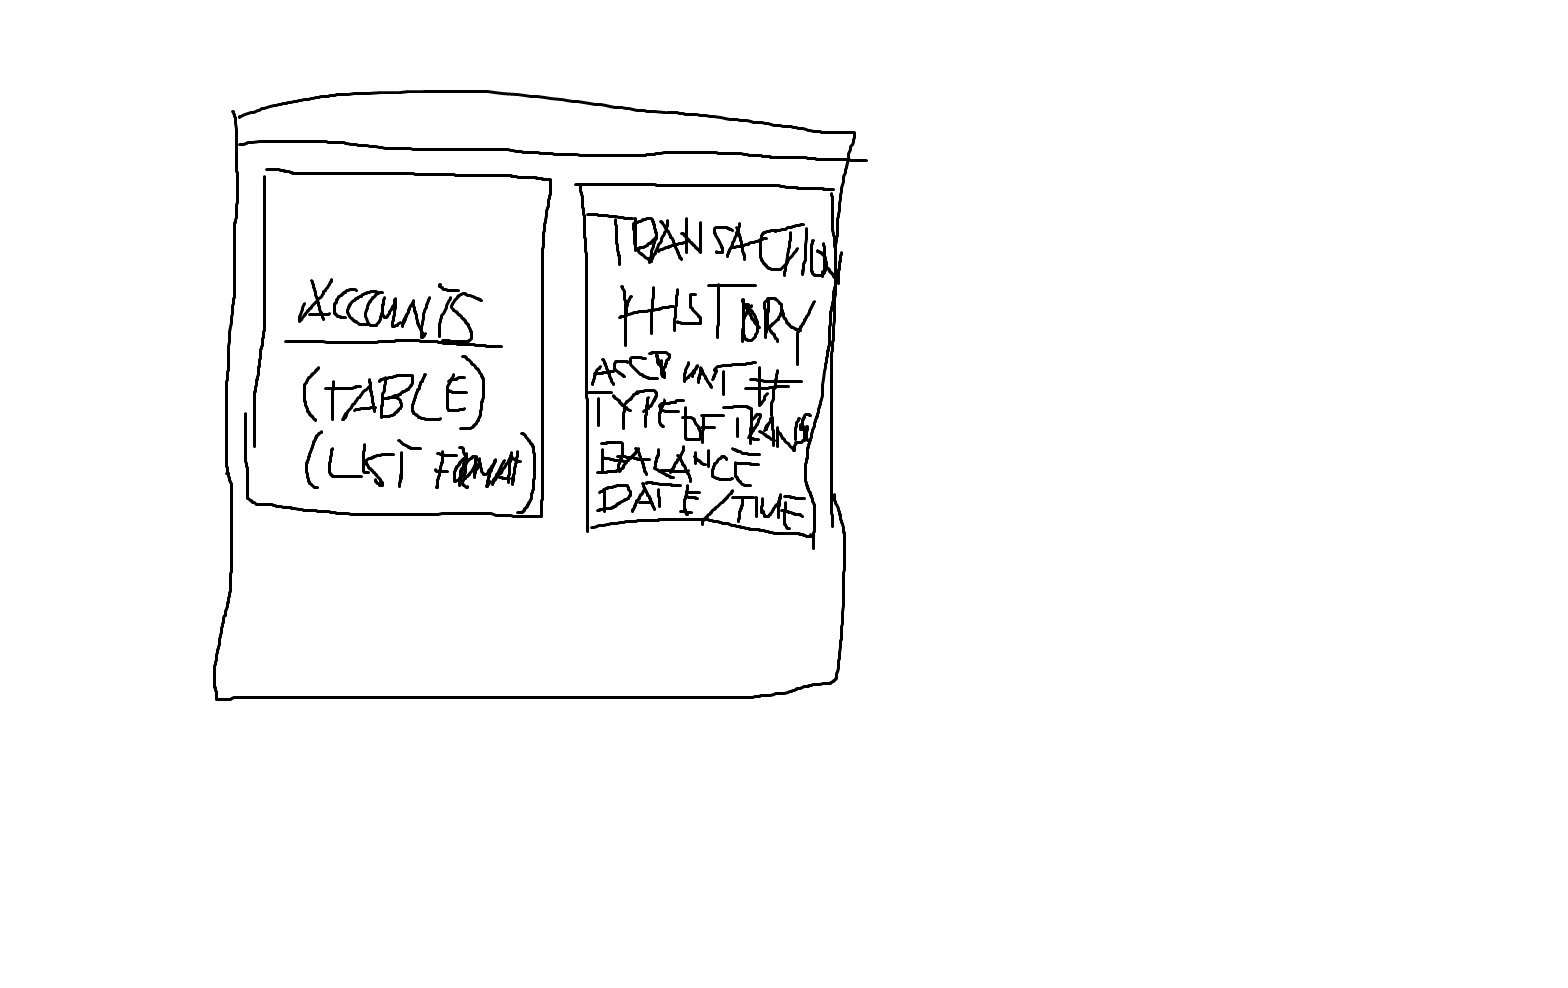 ACCOUNTS
(TABLE)
(LIST FORMAT)
TRANSACTION
HISTORY
ACCOUNT #
TYPE OF TRANS
BALANCE
DATE/TIME